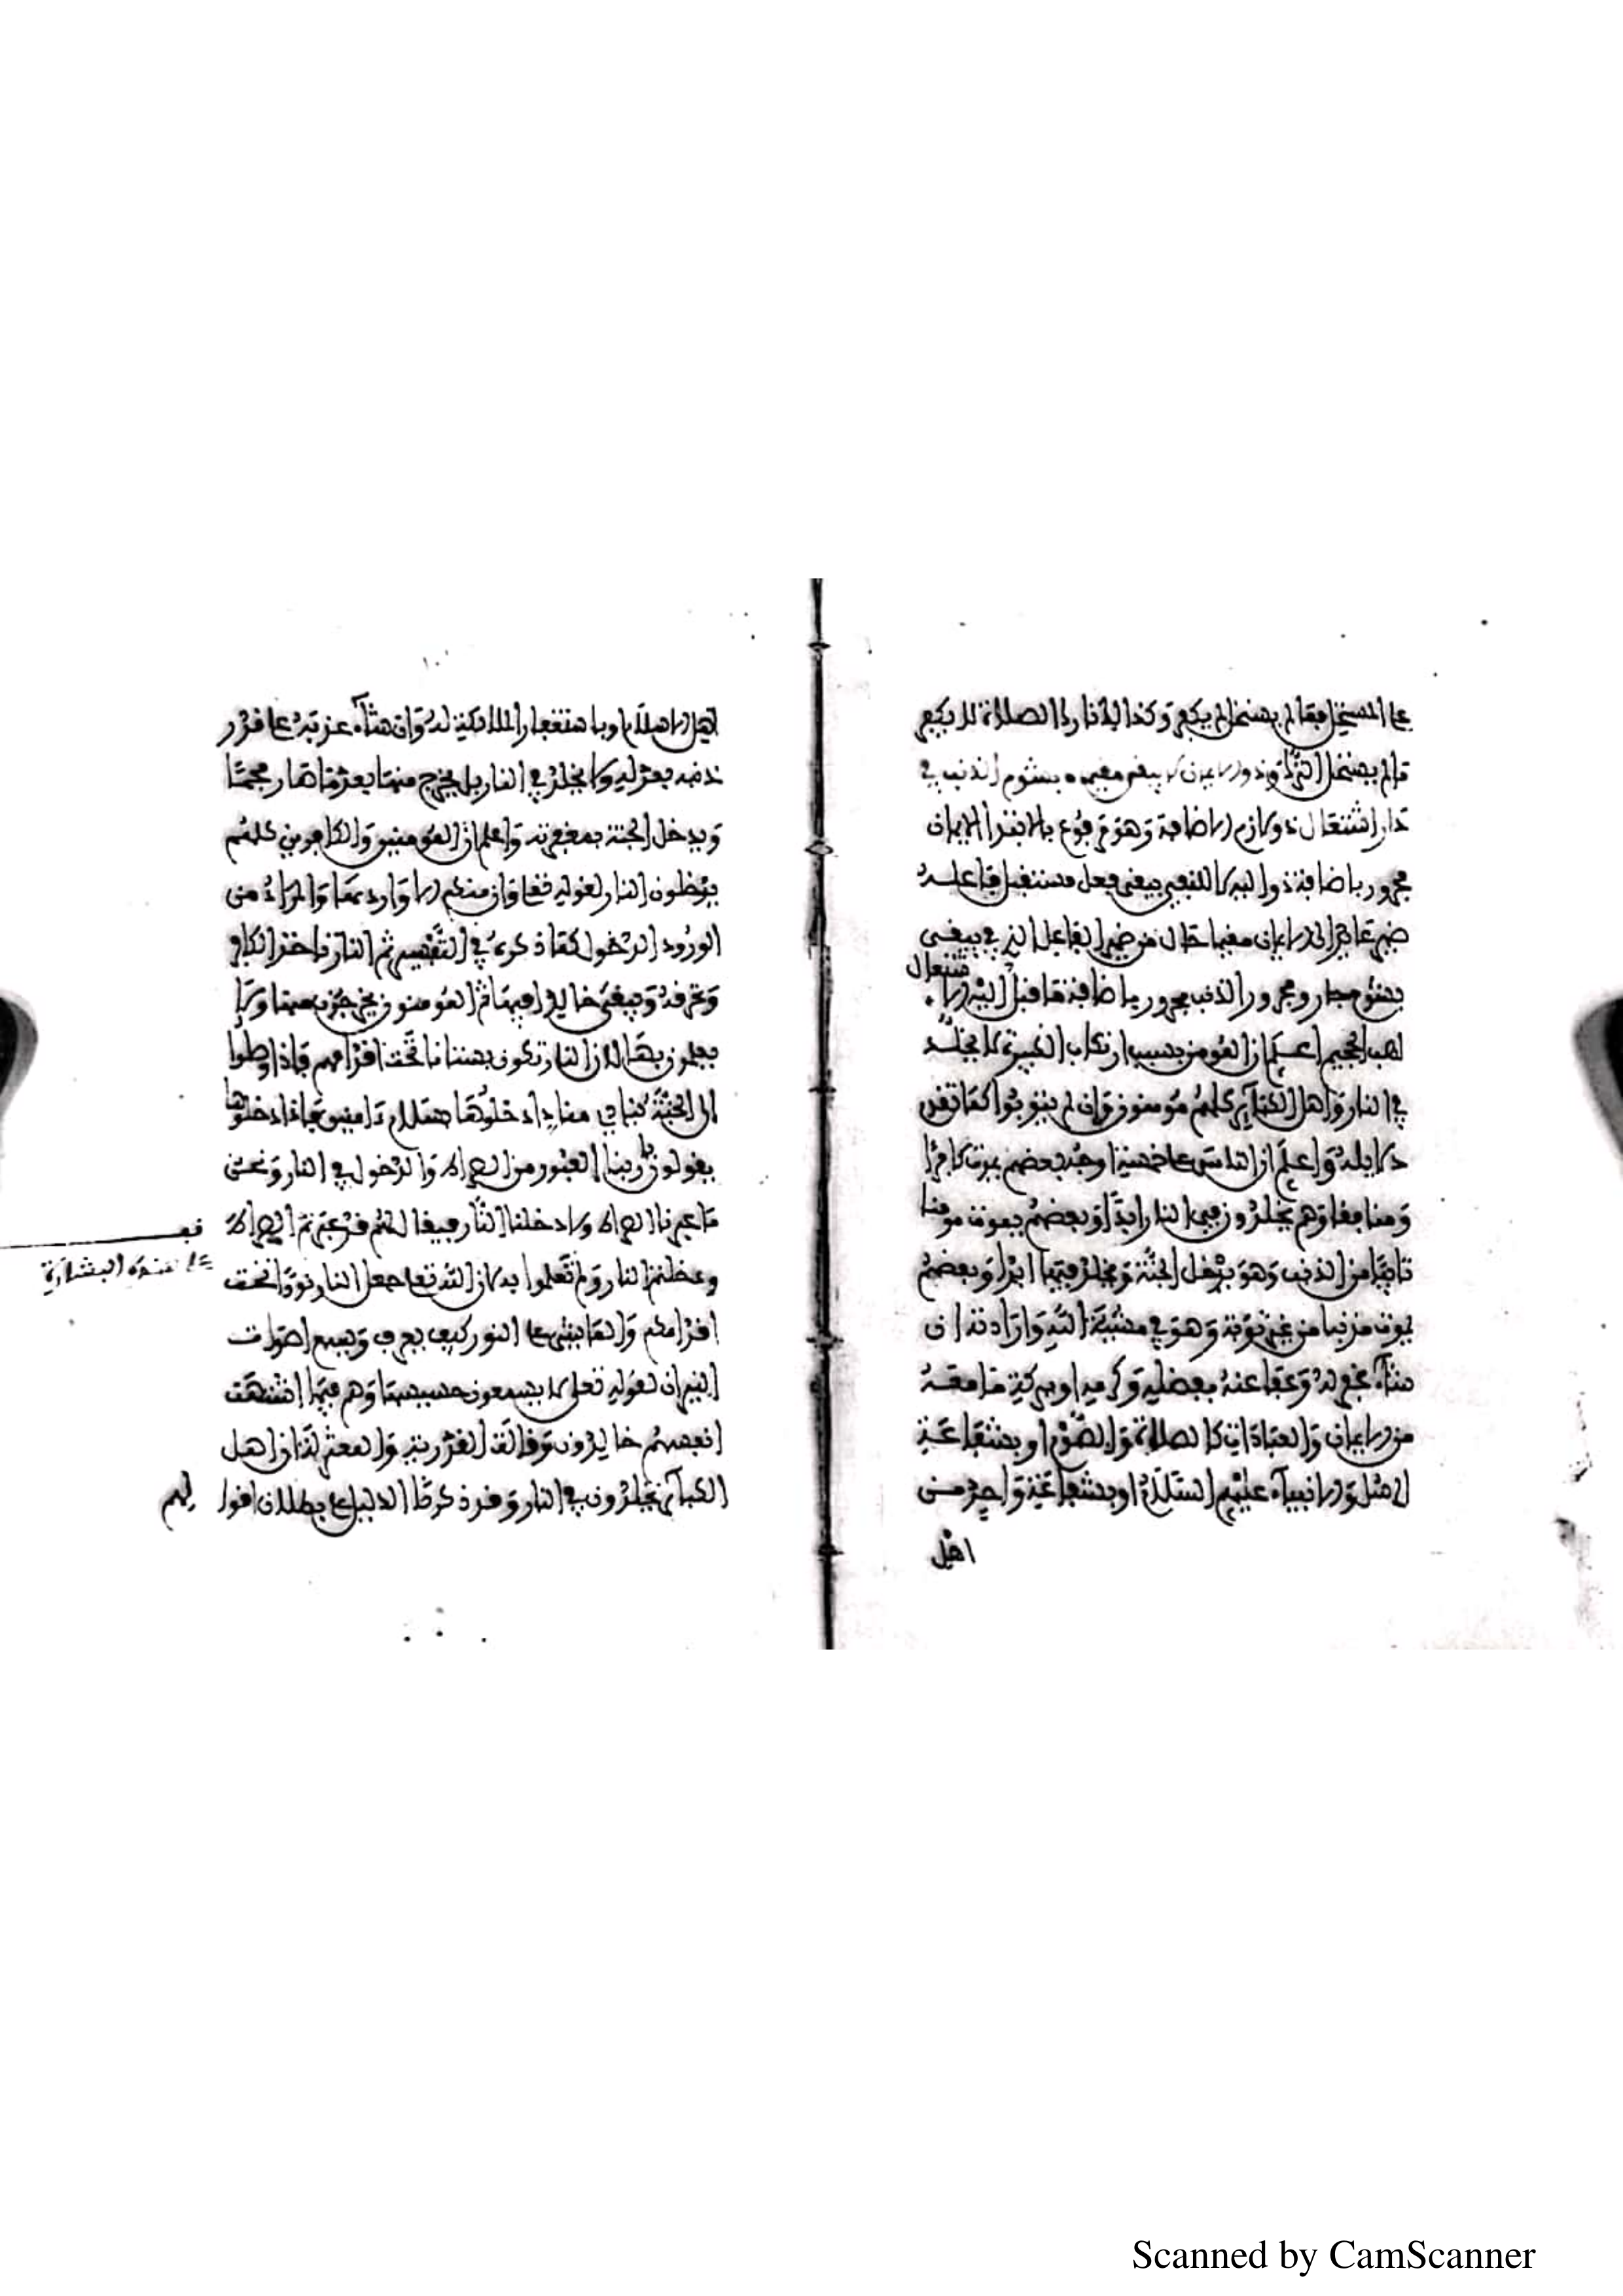 على المستحل فقال لم يستحل لم يكفر وكذا إذا ترك الصلاة لا يكفر
ما لم يستحل الترك وذو الإيمان لا يبقى مقيما بشؤم الذنب في
دار اشتعال ذو لازم الإضافة وهو مرفوع بالابتداء الإيمان
مجرور باضافة ذو اليه لا للنفي يبقى فعل مستقبل فاعله
ضمير عائد إلى الإيمان مقيما حال من ضمير الفاعل الذي في يبقى
بشؤم جار ومجرور الذنب مجرور باضافة ما قبل اليه
اشتعال
لهب الجحيم اعلم أن المؤمن بسبب ارتكاب الكبيرة لا يخلد
في النار وأهل الكبائر كلهم مؤمنون وإن لم يتوبوا كما تقدم
دلايله واعلم أن الناس على خمسة أوجه بعضهم يموت كافرا
ومنافقا وهم يخلدون في النار أبدا وبعضهم يموت مؤمنا
تائبا من الذنب وهو يدخل الجنة ويخلد فيها أبدا وبعضهم
يموت مذنبا من غير توبة وهو في مشيئة الله وارادته ان
شاء غفر له وعفا عنه بفضله وكرمه أو ببركة ما معه
من الإيمان والعبادات كالصلاة والصوم أو بشفاعة
الرسل والأنبياء عليهم السلام أو بشفاعة واحد من
اهل
أهل الإسلام أو باستغفار الملائكة له وان شاء عذبه على قدر
ذنبه بعدله ولا يخلد في النار بل يخرج منها بعد ما صار فحما
ويدخل الجنة بمغفرته واعلم أن المؤمنين والكافرين كلهم
يدخلون النار لقوله تعالى وإن منكم إلا واردها والمراد من
الورود الدخول كما ذكره في التفسير ثم النار تأخذ الكافر
وتحرقه ويبقى خالدا فيها ثم المؤمنون يخرجون منها ولا
يعلمون بها لأن النار تكون بستانا تحت أقدامهم فإذا وصلوا
إلى الجنة ينادي مناد ادخلوها بسلام آمنين فإذا دخلوها
يقولون ربنا العبور من الصراط والدخول في النار ونحن
ما عبرنا الصراط ولا دخلنا النار فيقال لهم قد عبرتم الصراط
ودخلتم النار ولم تعلموا به لأن الله تعالى جعل النار نورا تحت
أقدامكم والماشي على النور كيف يعرف ويسمع أصوات
النيران لقوله تعالى لا يسمعون حسيسها وهم فيما اشتهت
أنفسهم خالدون وقالت القدرية والمعتزلة أن أهل
الكبائر يخلدون في النار وقد ذكرنا الدليل على بطلان اقوا
لهم
هذه البشارة
Scanned by CamScanner